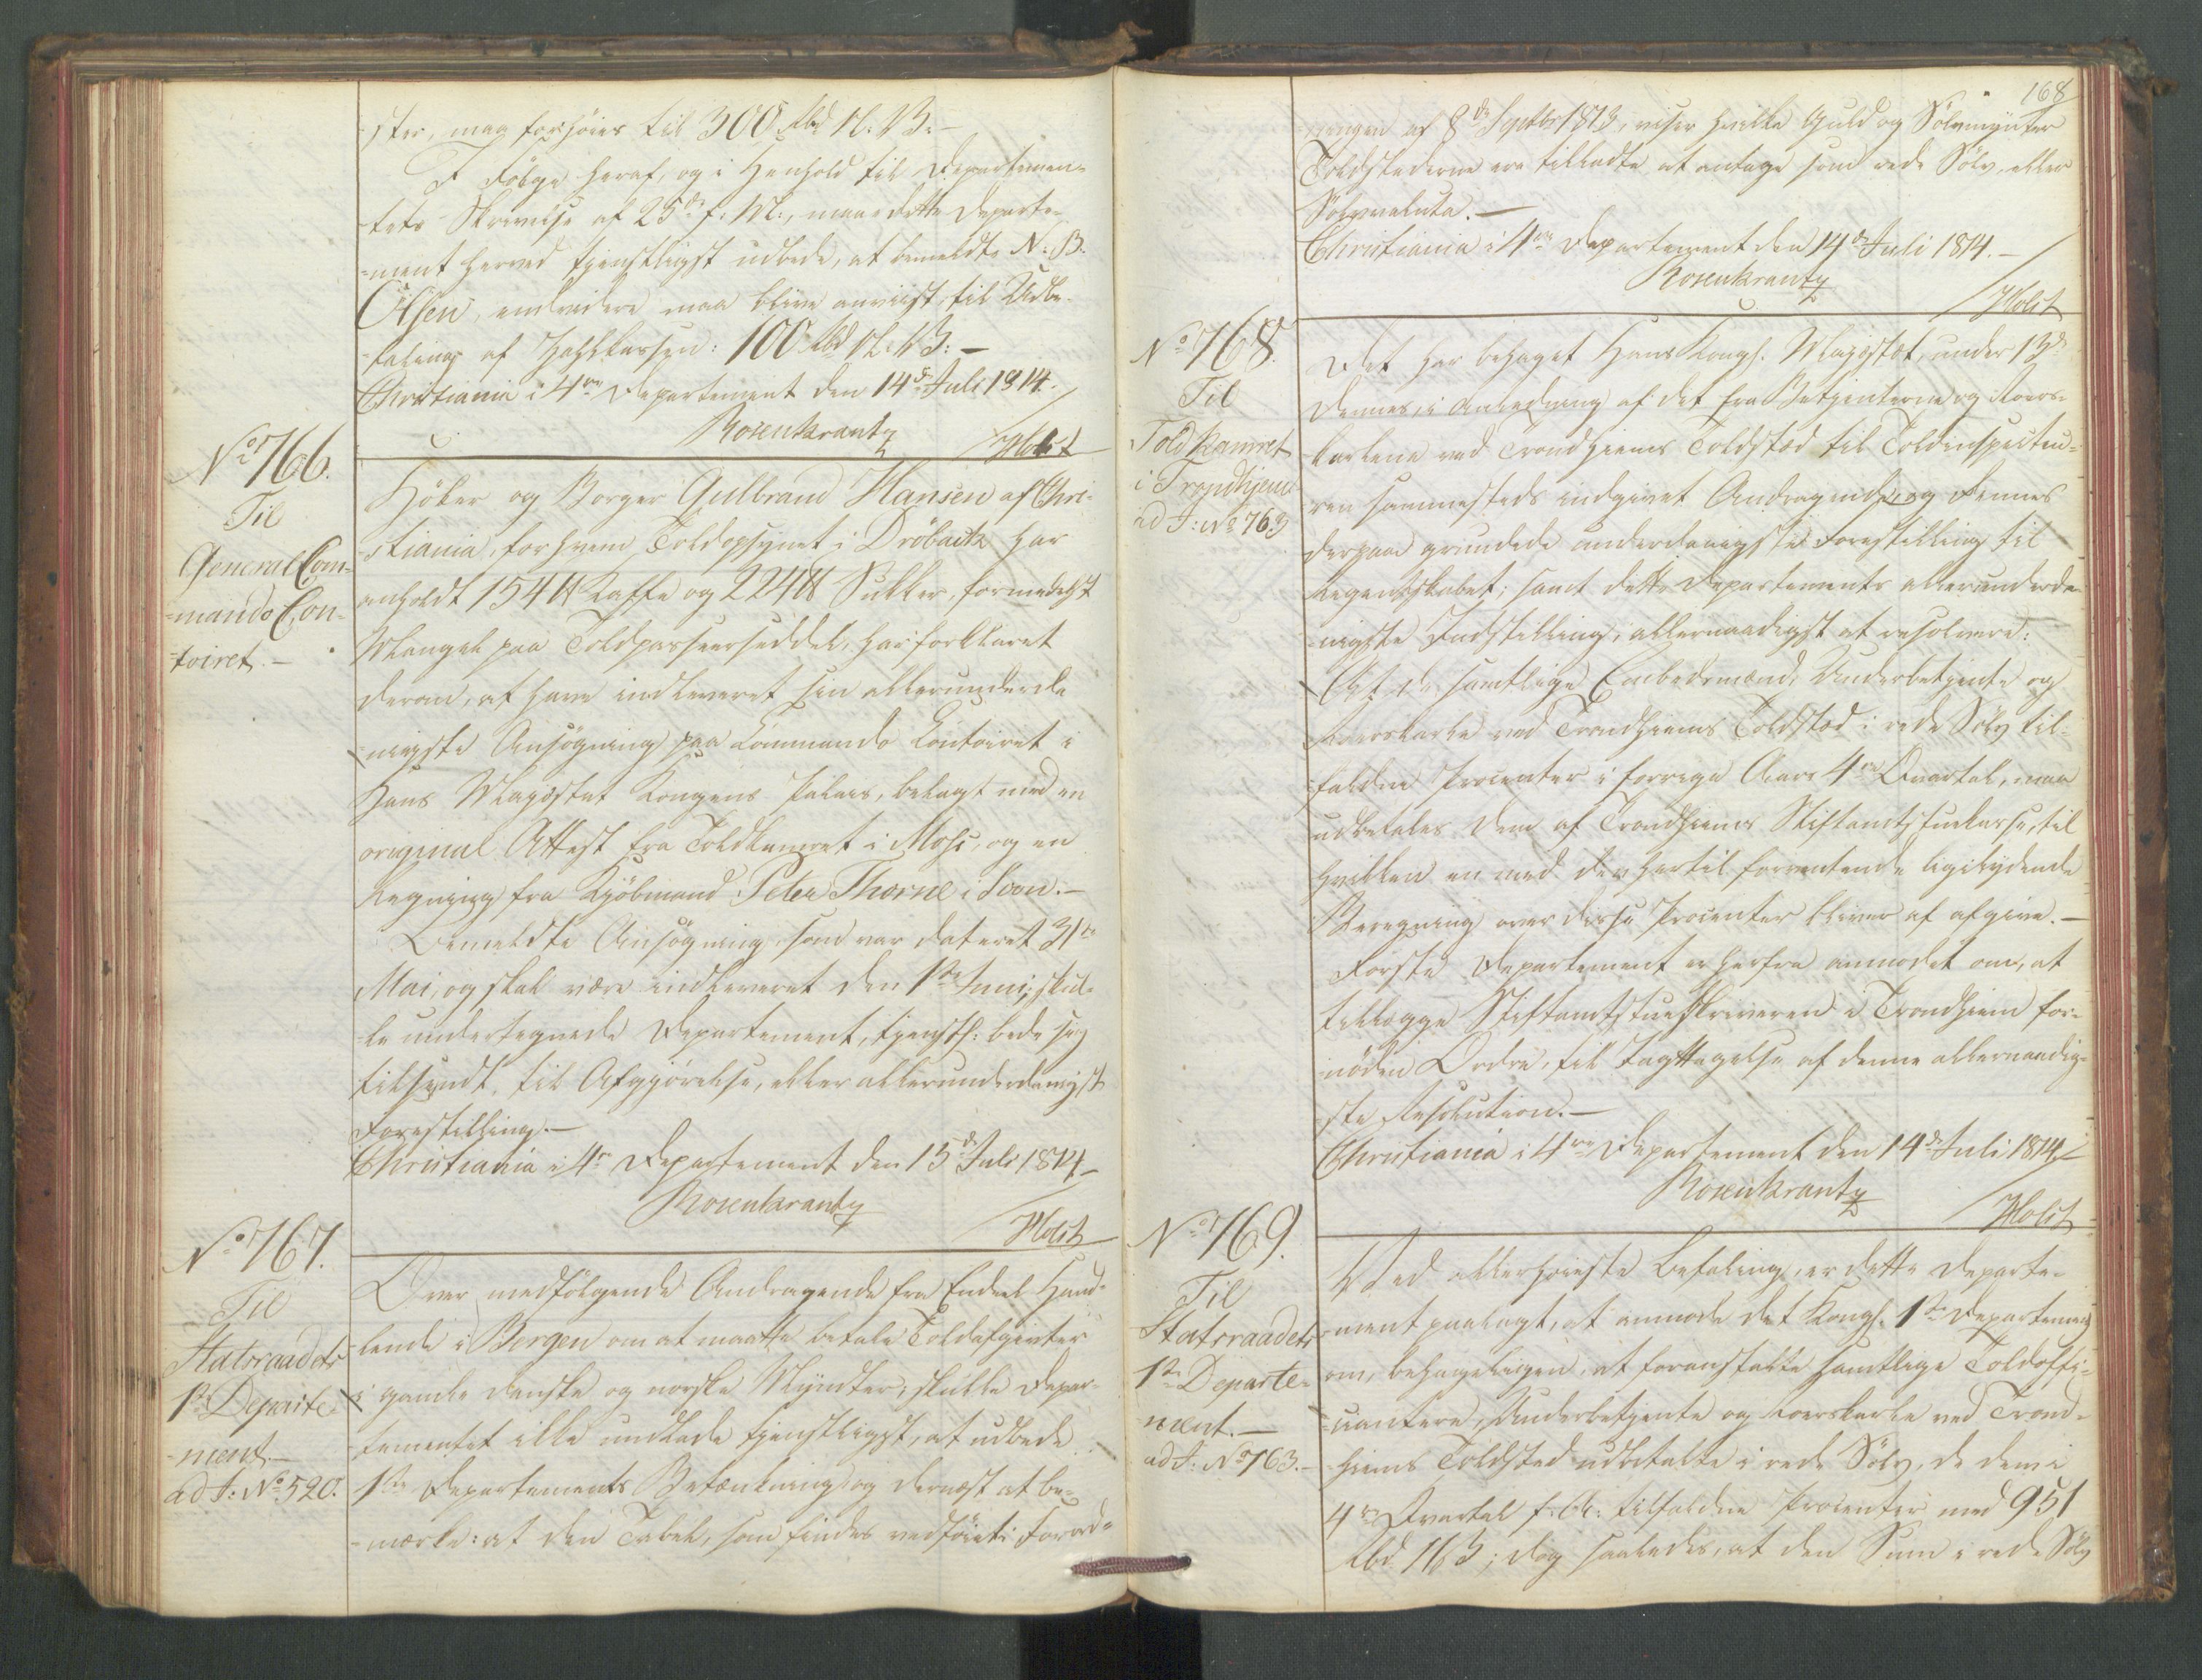 ster, maa forhøies til 300 Rbd N. V.–
I Følge heraf, og i Henhold til Departemen-
tets Skrivelse af 25de f. M., maae dette Departe-
ment herved tjenstligst udbede, at bemeldte N. B.
Olsen, endvidere maa blive anviist til Udbe-
taling af Zahlkassen: 100 Rbd N. V.–
Christiania i 4de Departement den 14de Juli 1814.
Rosenkrantz
/Holst
No 766.
Til
General Com-
mando Con-
toiret.–
Höker og Borger Gulbrand Hansen af Chri-
stiania, for hvem Toldopsynet i Dröback har
anholdt 154 ℔ Kaffe og 224 ℔ Sukker, formedelst
Mangel paa Toldpasseerseddel, har forklaret
derom, at have indleveret sin allerunderda-
nigste Ansøgning paa Commando Contoiret i
Hans Majestæt Kongens Palais, belagt med en
original Attest fra Toldkamret i Moss, og en
Regning fra Kjøbmand Peter Thorne i Soon.–
Bemeldte Ansøgning, som var dateret 31te
Mai, og skal være indleveret den 1ste Juni, skul-
le undertegnede Departement, tjenstl: bede sig
tilsendt, til Afgjørelse, eller allerunderdanigst
Forestilling.–
Christiania i 4de Departement den 15de Juli 1814–
Rosenkrantz
/Holst
No 767.
Til
Statsraadets
1ste Departe-
ment.–
ad J: No 520.
Over medfølgende Andragende fra Endeel Hand-
lende i Bergen om at maatte betale Toldafgivter
i gamle danske og norske Mynter, skulle Depar-
tementet ikke undlade tjenstligst, at udbede
1ste Departements Betænkning og dernæst at be-
mærke: at den Tabel, som findes vedføiet Forord-
168
ningen af 8de Septbr 1813, viser hvilke Guld og Sølvmynter
Toldstederne ere tilladte at antage som rede Sølv eller
Sølvvaluta.–
Christiania i 4de Departement den 14de Juli 1814.–
Rosenkrantz
/Holst
No 768.
Til
Toldkamret
i Trondhjem
ad J: No 763
Det har behaget Hans Kongl. Majestæt, under 13de
dennes, i Anledning af det fra Betjenterne og Roers-
karlene ved Trondhiems Toldsted til Toldinspecteu-
ren sammesteds indgivet Andragende og dennes
derpaa grundede underdanigste Forestilling til
Regentskabet; samt dette Departements allerunderda-
nigste Indstilling, allernaadigst at resolvere:
At de samtlige Embedsmænd, Underbetjente og
Roerskarle ved Trondhiems Toldsted i rede Sølv til-
faldne Procenter i forrige Aars 4de Qvartal, maa
udbetales dem af Trondhiems Stiftamtstuekasse, til
hvilken en med den hertil forventende ligelydende
Beregning over disse Procenter bliver at afgive.–
Første Departement er herfra anmodet om, at
tillægge Stiftamtstueskriveren i Trondhiem for-
nøden Ordre, til Iagttagelse af denne allernaadig-
ste Resolution.–
Christiania i 4de Departement den 14de Juli 1814
Rosenkrantz
/Holst
No 769.
Til
Statsraadets
1ste Departe-
ment.–
ad J: No 763.–
Ved allerhøieste Befaling, er dette Departe-
ment paalagt, at anmode det Kongl. 1ste Departement
om, behageligen, at foranstalte samtlige Toldoffi-
cianter, Underbetjente og Roerskarle ved Trond-
hiems Toldsted udbetalte i rede Sølv, de dem i
4de Qvartal f: A: tilfaldne Procenter med 951
Rbd. 11 ß; dog saaledes, at den Sum i rede Sølv